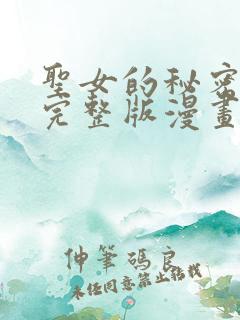 聖女的秘密
完整版漫畫
仲筆碼良
未任同意禁止轉載